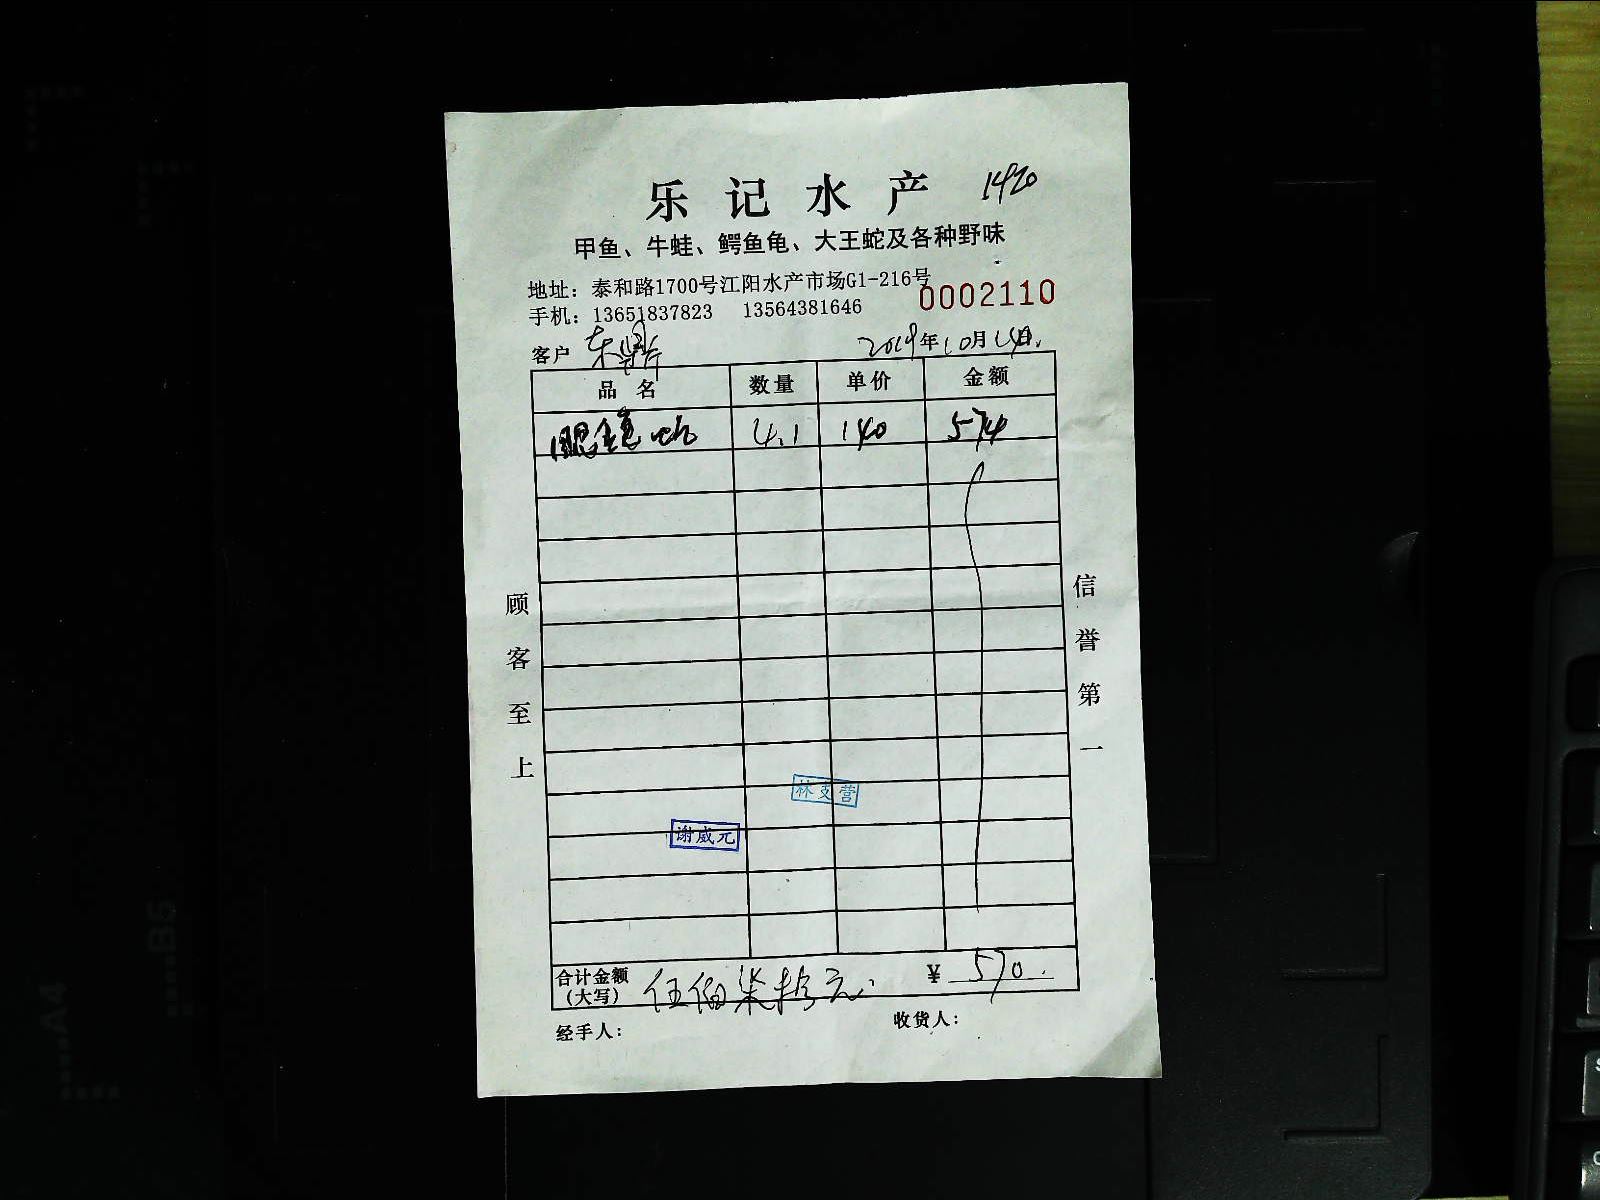 乐记水产 1420
甲鱼、牛蛙、鳄鱼龟、大王蛇及各种野味
地址：泰和路1700号江阳水产市场G1-216号
手机：13651837823 13564381646 0002110
客户 2019年10月14日.
品名 数量 单价 金额
眼镜蛇 4.1 140 574
顾客至上
信誉第一
林支营
谢威元
合计金额（大写） 伍佰柒拾元. ¥ 570.
经手人： 收货人：